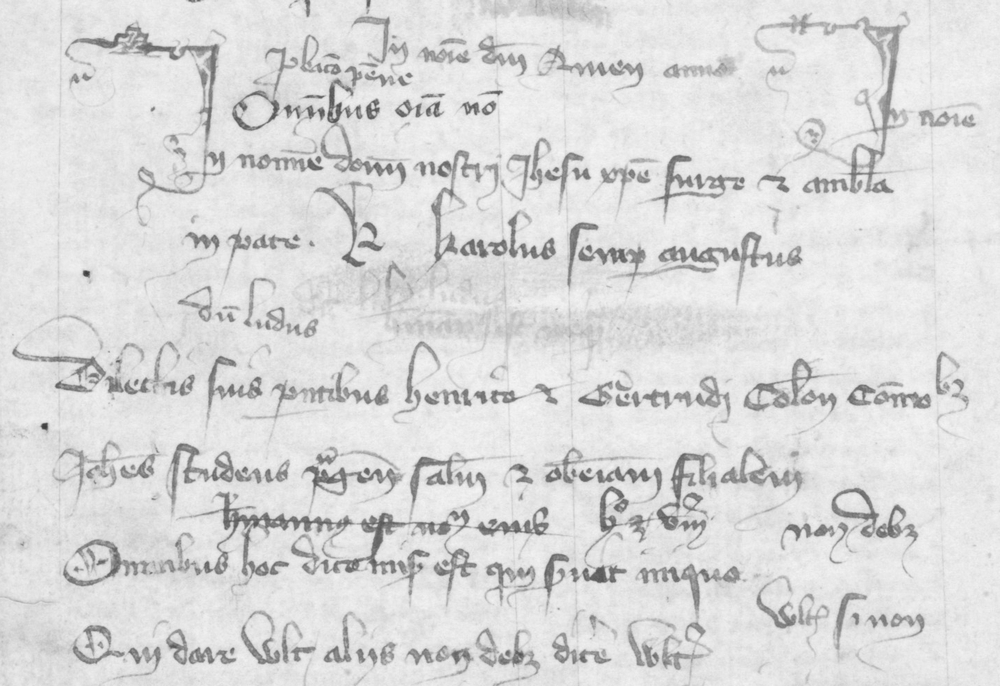 In noie dm Amen anno
Omnibus oia no
In noie
In nomine domi nostri Jhesu xpe surge et ambla
in pace. K Karolus semp augustus
du ludus
Dilectis suis pntibus henrico et Gertrudi Colon Como bz
Johes studens pragen salm et obeiam filialem
est no eius non debz
Omnibus hoc dico miser est qui seruit iniquo
wlt si non
Qui dare wlt aliis non debz dicere wltis